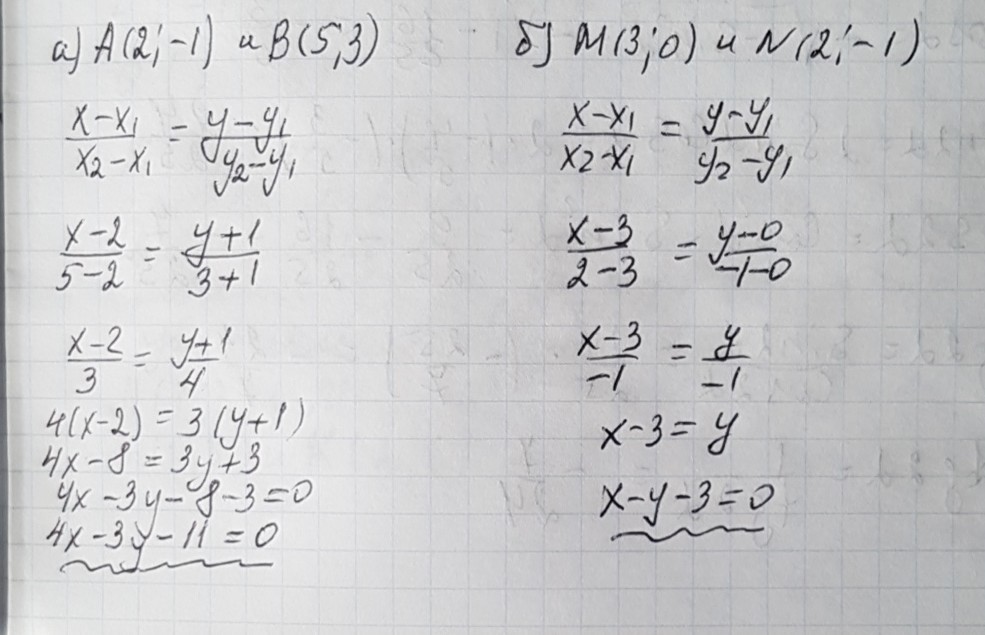 а) A(2; -1) и B(5; 3)
x-x₁/x₂-x₁ = y-y₁/y₂-y₁
x-2/5-2 = y+1/3+1
x-2/3 = y+1/4
4(x-2) = 3(y+1)
4x-8 = 3y+3
4x-3y-8-3=0
4x-3y-11=0
б) M(3; 0) и N(2; -1)
x-x₁/x₂-x₁ = y-y₁/y₂-y₁
x-3/2-3 = y-0/-1-0
x-3/-1 = y/-1
x-3=y
x-y-3=0